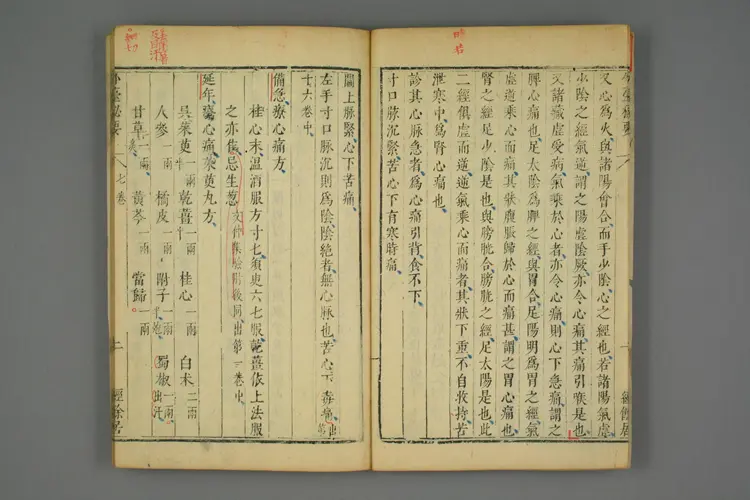 又心為火與諸陽會合而手少陰心之經也若諸陽氣虛
少陰之經氣逆謂之陽虛陰厥亦令心痛其痛引喉是也
又諸臟虛受病氣乘於心者亦令心痛則心下急痛謂之
脾心痛也足太陰為脾之經與胃合足陽明為胃之經氣
虛逆乘心而痛其狀腹脹歸於心而痛甚謂之胃心痛也
腎之經足少陰是也與膀胱合膀胱之經足太陽是也此
二經俱虛而逆逆氣乘心而痛者其狀下重不自收持苦
泄寒中為腎心痛也
診其心脉急者為心痛引背食不下
寸口脉沉緊苦心下有寒時痛
關上脉緊心下苦痛
左手寸口脉沉則為陰陰絕者無心脉也苦心下毒痛出第
十六卷中
備急療心痛方
桂心末溫酒服方寸七須臾六七服乾薑依上法服
之亦佳忌生葱文仲集驗同出第一卷中
延年療心痛茱萸丸方
吳茱萸一兩半 乾薑一兩半 桂心一兩 白朮二兩
人參一兩 橘皮一兩 附子一兩半炮 蜀椒一兩出汗
甘草一兩炙 黃芩一兩 當歸一兩
外臺秘要
七卷
經餘居